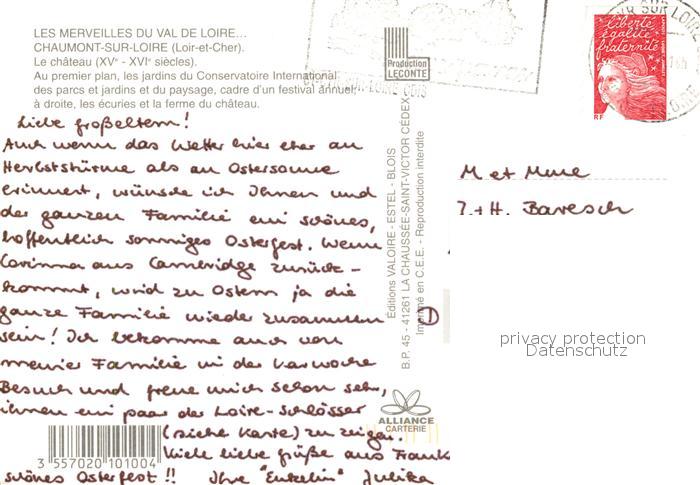 LES MERVEILLES DU VAL DE LOIRE...
CHAUMONT-SUR-LOIRE (Loir-et-Cher).
Le château (XVe - XVIe siècles).
Au premier plan, les jardins du Conservatoire International
des parcs et jardins et du paysage, cadre d'un festival annuel,
à droite, les écuries et la ferme du château.
Production
LECONTE
liberté
égalité
fraternité
RF
Liebe Großeltern!
Auch wenn das Wetter hier eher an
Herbststürme als an Ostersonne
erinnert, wünsche ich Ihnen und
der ganzen Familie ein schönes,
hoffentlich sonniges Osterfest. Wenn
Corinna aus Cambridge zurück-
kommt, wird zu Ostern ja die
ganze Familie wieder zusammen
sein! Ich bekomme auch von
meiner Familie in der Karwoche
Besuch und freue mich schon sehr,
ihnen ein paar der Loire-Schlösser
(siehe Karte) zu zeigen.
Viele liebe Grüße aus Frank
schönes Osterfest!! Ihre "Enkelin" Julika
Éditions VALOIRE - ESTEL - BLOIS
B.P. 45 - 41261 LA CHAUSSÉE-SAINT-VICTOR CÉDEX
Imprimé en C.E.E. - Reproduction interdite
M et Mme
J.+H. Baresch
D
privacy protection
Datenschutz
ALLIANCE
CARTERIE
3 557020 101004